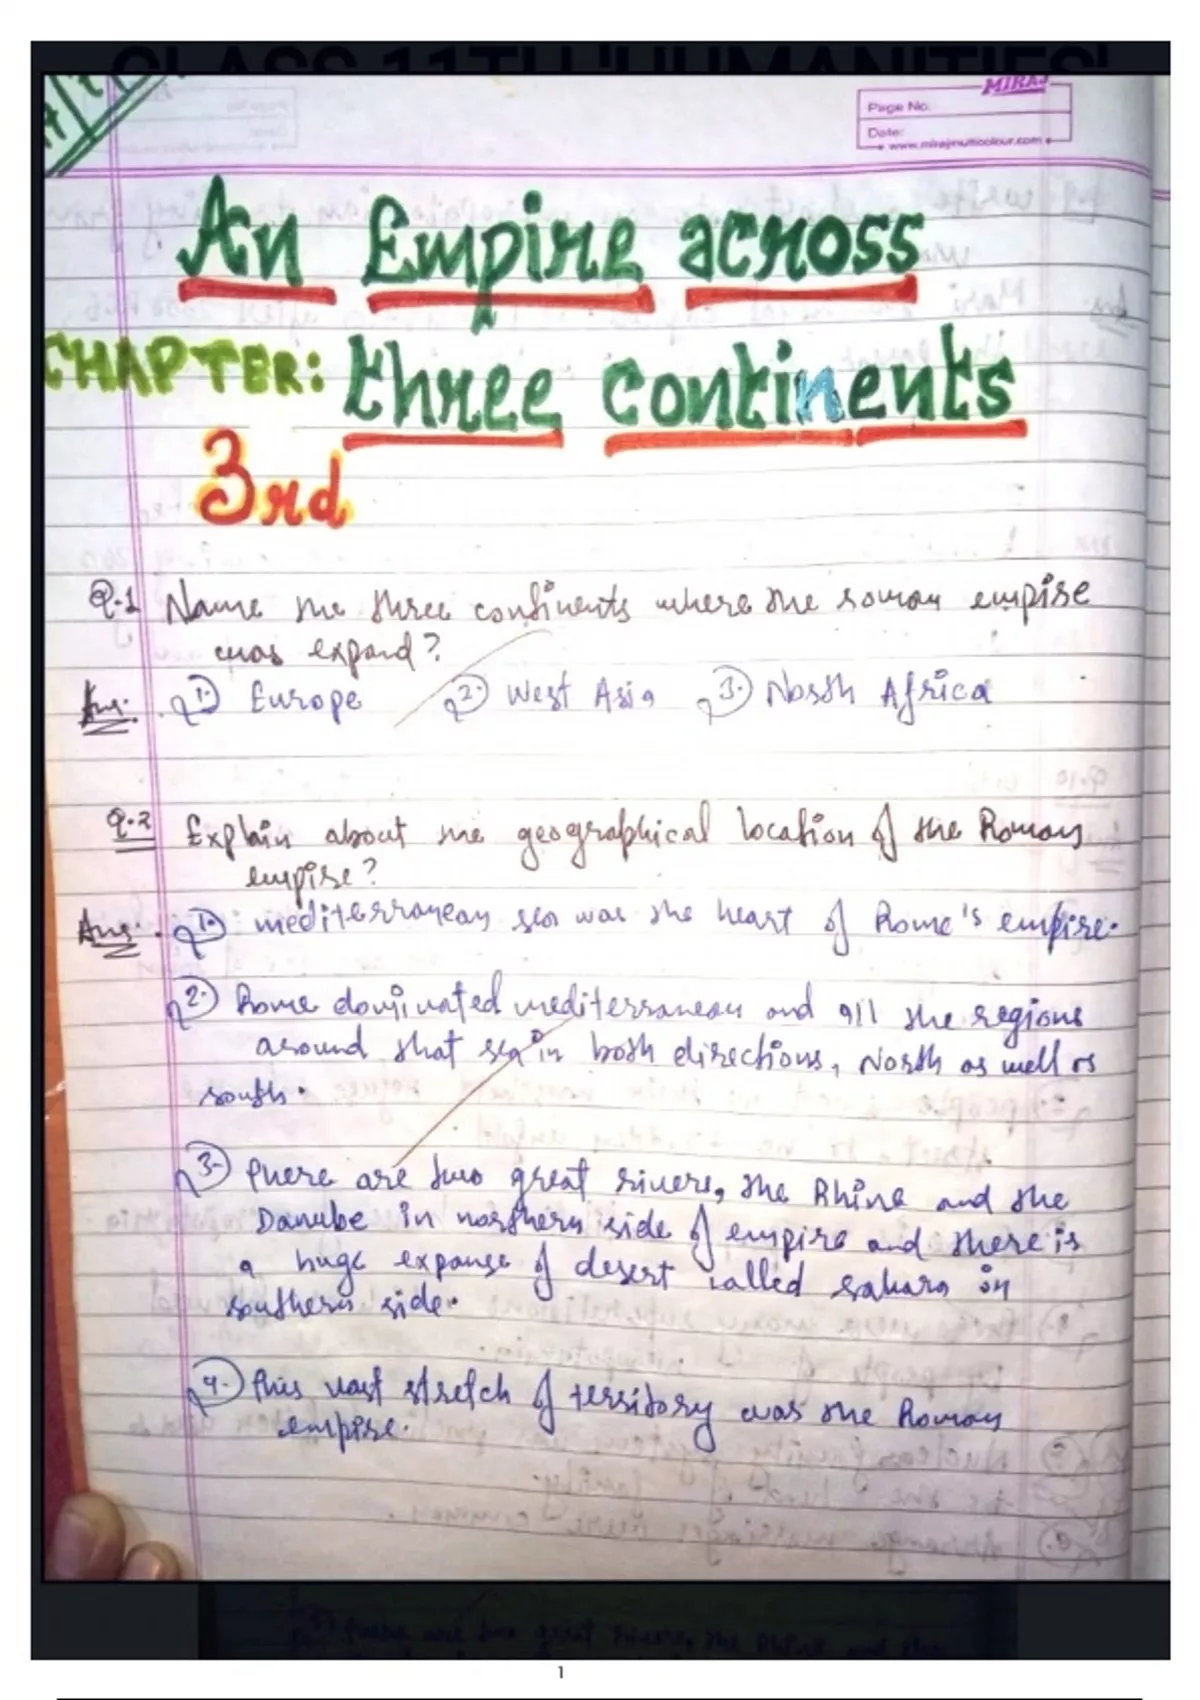 CLASS 11TH 'HUMANITIES'
MIRAJ
Page No.
Date:
www.mirajmulticolour.com
An Empire across
CHAPTER: three continents
3rd
Q.1 Name the three continents where the roman empire
was expand?
Ans. 1. Europe 2. West Asia 3. North Africa
Q.2 Explain about the geographical location of the Roman
empire?
Ans. 1. mediterranean sea was the heart of Rome's empire.
2. Rome dominated mediterranean and all the regions
around that sea in both directions, North as well as
south.
3. There are two great rivers, the Rhine and the
Danube in northern side of empire and there is
a huge expanse of desert called sahara in
southern side.
4. This vast stretch of territory was the Roman
empire.
1